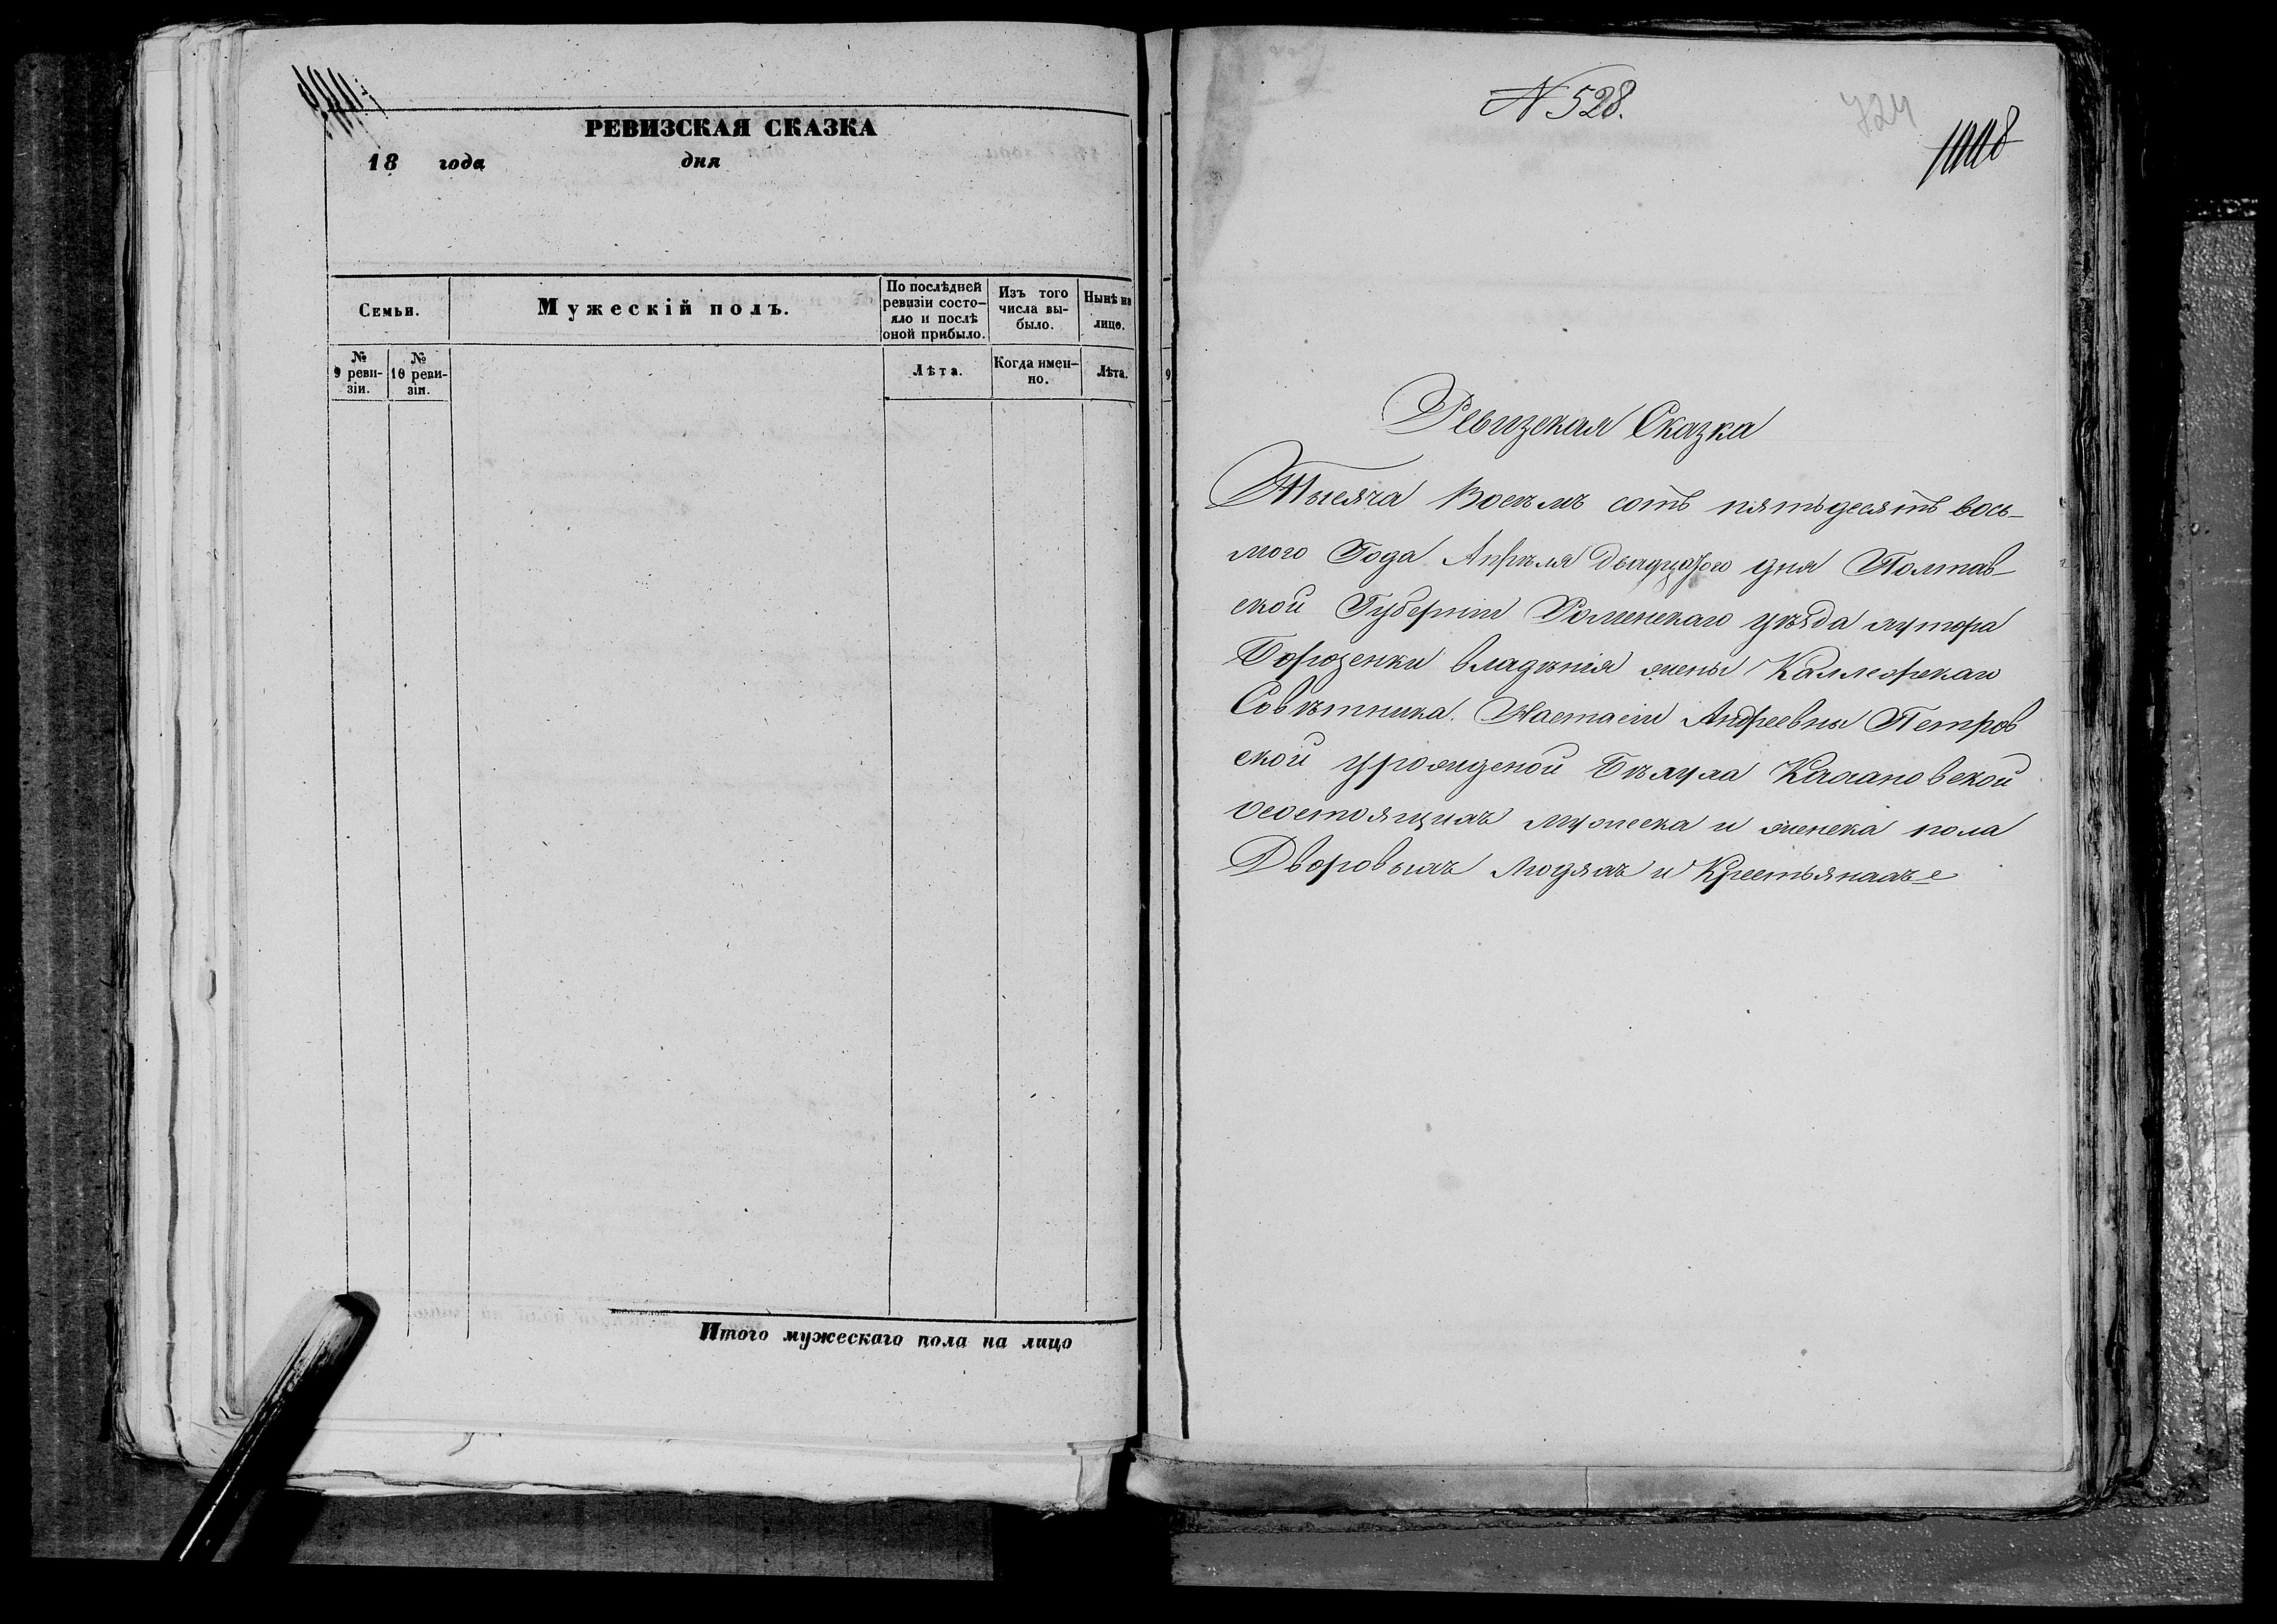 РЕВИЗСКАЯ СКАЗКА
18 года дня
Семьи.
Мужескій полъ.
По послѣдней ревизіи состо-
яло и послѣ
оной прибыло.
Изъ того
числа вы-
было.
Нынѣ на
лицо.
№
9 реви-
зіи.
№
10 реви-
зіи.
Лѣта.
Когда имен-
но.
Лѣта.
Итого мужескаго пола на лицо
N 528.
724
Ревизская Сказка
Тысяча Восемъ сотъ пятьдесятъ вось-
мого Года Апрѣля Двадцатого дня Полтав-
ской Губерніи Роменскаго уѣзда хутора
владѣнія жены Коллежскаго
Совѣтника. Настасіи Андреевны Петров
ской урожденой Бѣлуха Кохановской
состоящихъ мужеска и женска пола
Дворовыхъ людяхъ и Крестьянахъ